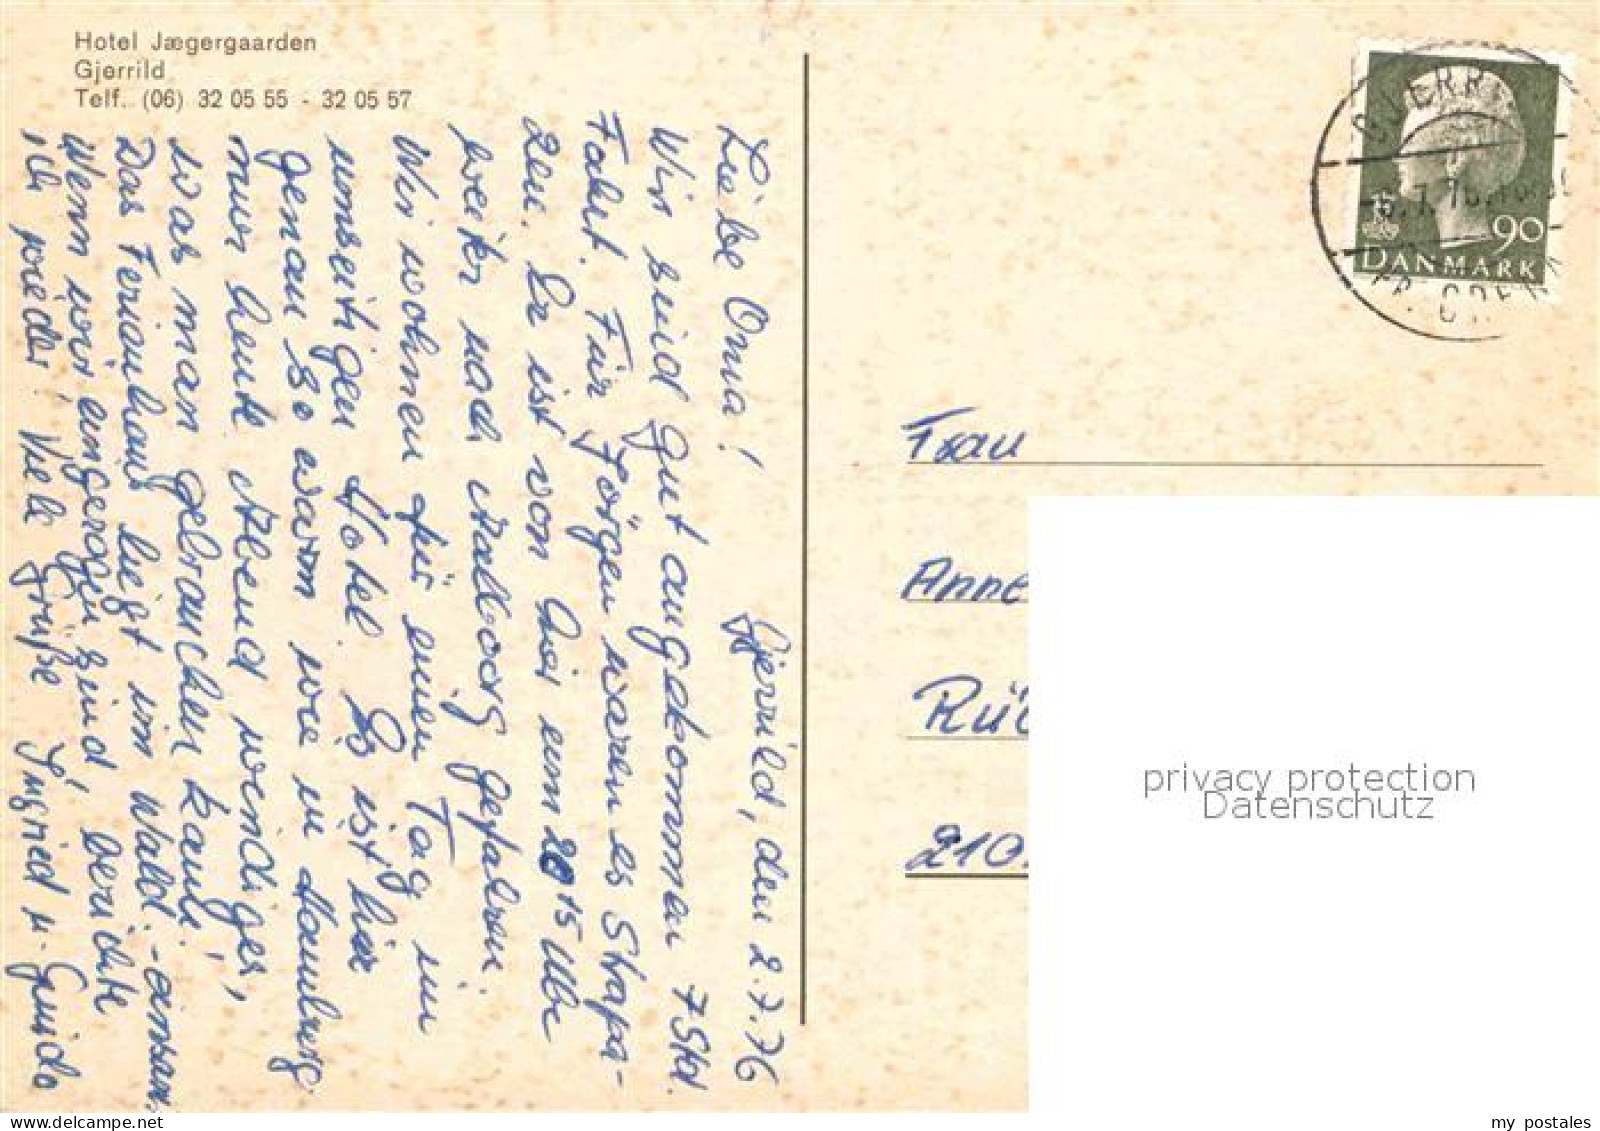 Hotel Jægergaarden
Gjerrild
Telf. (06) 32 05 55 - 32 05 57
Gjerrild, den 2.7.76
Liebe Oma!
Wir sind gut angekommen 7 Std.
Fahrt. Für Jörgen waren es Strapa-
zen. Er ist von hier um 20 15 Uhr
weiter nach Aalborg gefahren.
Wir wohnen für einen Tag im
umseitigen Hotel. Es ist hier
genau so warm wie in Hamburg
nur heute Abend windiger,
was man gebrauchen kann!
Das Ferienhaus liegt im Wald - einsam.
Wenn wir eingezogen sind, berichte
ich wieder! Viele Grüße Ingried u. Guido
90
DANMARK
Frau
Anne
Rü
210
privacy protection
Datenschutz
my postales